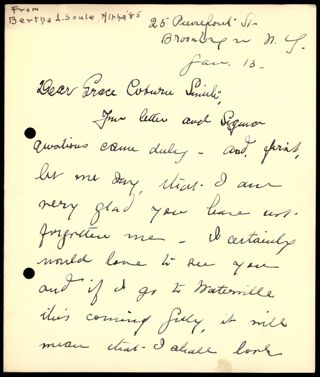 From
Bertha L. Soule Alpha '85
25 Pierrepont St.
Brooklyn N.Y.
Jan. 13.
Dear Grace Coburn Smith;
Your letter and Sigma
questions came duly - and, first,
let me say, that I am
very glad you have not
forgotten me - I certainly
would love to see you
and if I go to Waterville
this coming July, it will
mean that I shall look